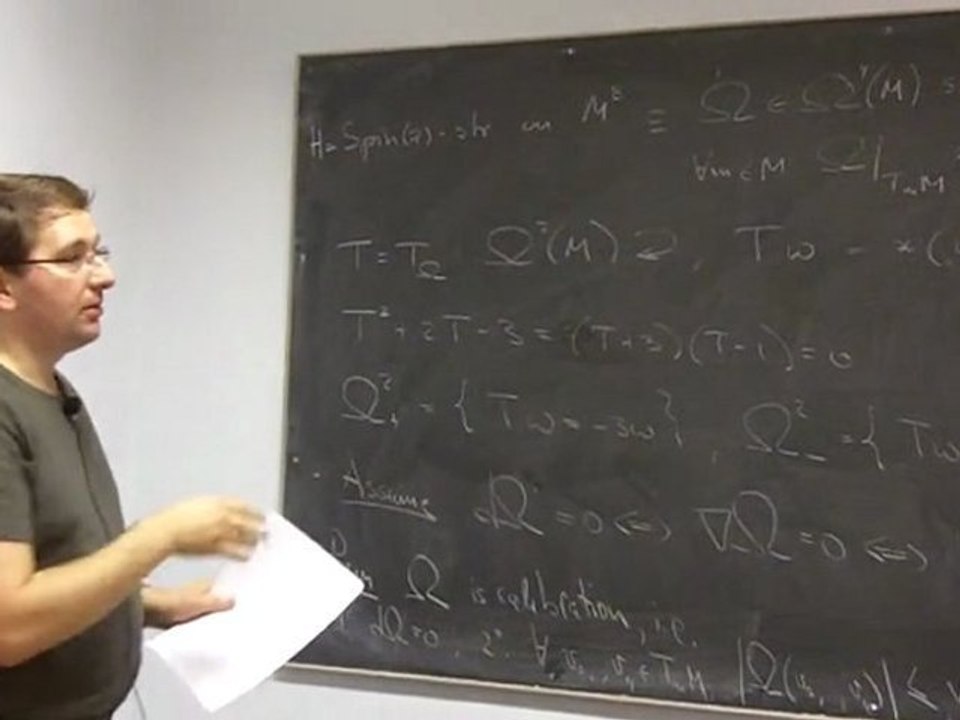 H = Spin(7)-str on M⁸ ≡ Ω ∈ Ω⁴(M) s
∀m∈M Ω|_{T_mM}
T = T_Ω Ω²(M) ↺, Tω = *(
T² + 2T - 3 = (T+3)(T-1) = 0
Ω²₊ = { Tω = -3ω }, Ω²₋ = { Tω
· Assume dΩ = 0 <=> ∇Ω = 0 <=>
Ω is calibration, i.e.
dΩ=0, 2° ∀ v₁, , v₄ ∈ T_mM |Ω(v₁, , v₄)| ≤